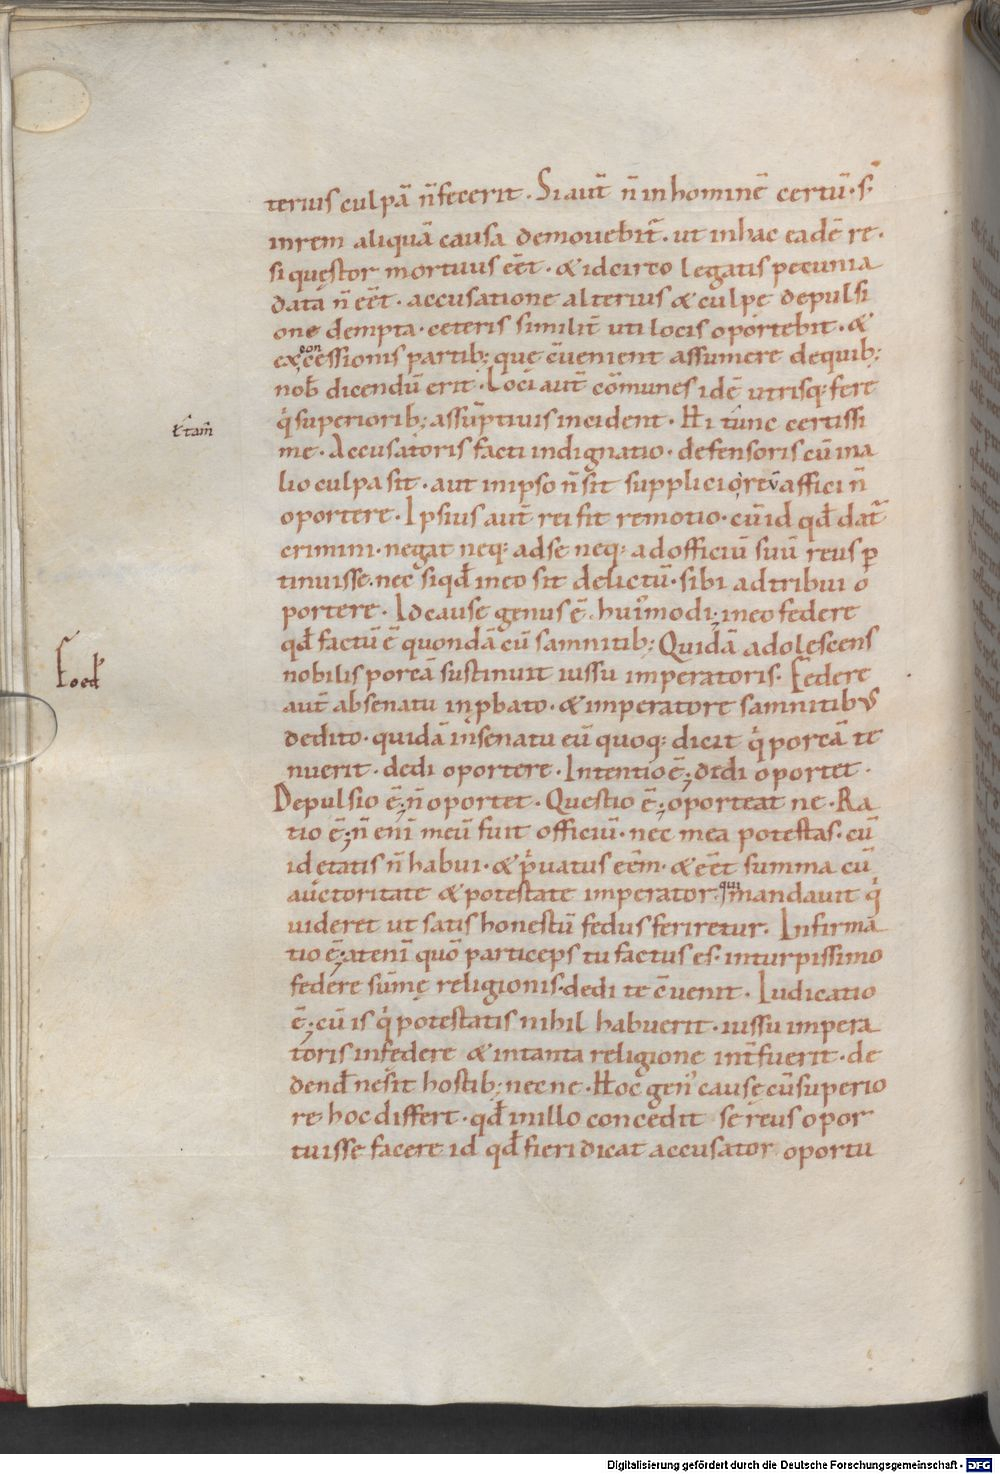 terius culpā n̄ fecerit. Si aut̄ n̄ in hominē certū. s;
in rem aliquā causa demovebit̄. ut in hac eadē re.
si quęstor mortuus eēt. & idcirco legatis pecunia
data n̄ eēt. accusatione alterius & culpę depulsi
one dempta. ceteris similit̄ uti locis oportebit. &
ex con cessionis partib; quę c̄venient assumere de quib;
nob̄ dicendū erit. Loci aut̄ cōmunes idē utrisq; fere
q̇ superiorib; assūptivis incident. Hi tūnc certissi
ł tam̄
me. Accusatoris facti indignatio. defensoris cū in a
lio culpa sit. aut in ipso n̄ sit supplicio reū affici n̄
oportere. Ipsius aut̄ rei fit remotio. cū id qd̄ dat̄
crimini. negat neq; ad se neq; ad officiū suū reus p̱
tinuisse. nec siqd̄ in eo sit delictū. sibi adtribui o
portere. Id causę genus ē. hui᷒modi; in eo federe
qd̄ factū ē quondā cū samnitib; Quidā adolescens
Foed̄
nobilis porcā sustinuit iussu imperatoris. Federe
aut̄ ab senatu inp̱bato. & imperatore samnitibus
dedito. quidā in senatu eū quoq; dicit q̇ porcā te
nuerit. dedi oportere. Intentio ē; dedi oportet.
Depulsio ē; n̄ oportet. Questio ē; oporteat ne. Ra
tio ē; n̄ eni̅ meū fuit officiū. nec mea potestas. cū
id etatis n̄ habui. & ṗvatus eēm. & eēt summa cū
auctoritate & potestate imperator. qui mandavit q̇
videret ut satis honestū fedus feriretur. Infirma
tio ē; at eni̅ quō particeps tu factus es. in turpissimo
federe sūmę religionis. dedi te c̄venit. Iudicatio
ē; cū is q̇ potestatis nihil habuerit. iussu impera
toris in federe & in tanta religione int̄fuerit. de
dend᷒ ne sit hostib; nec ne. Hoc gen᷒ causę cū superio
re hoc differt. qd̄ in illo concedit se reus opor
tuisse facere id qd̄ fieri dicat accusator oportu
Digitalisierung gefördert durch die Deutsche Forschungsgemeinschaft - DFG